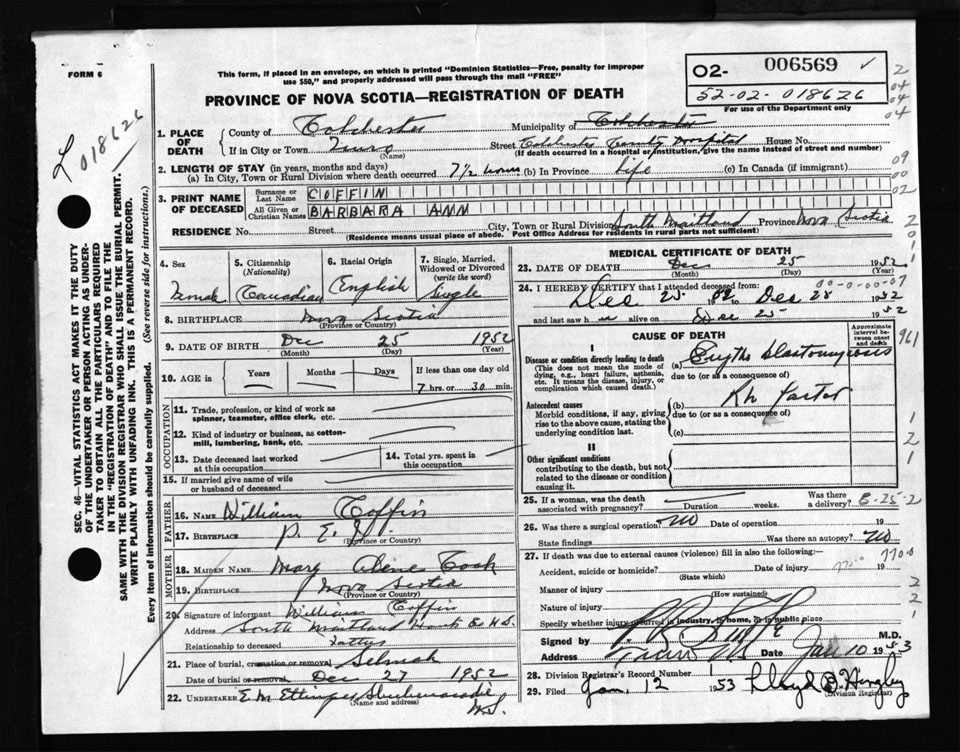 FORM 6
This form, if placed in an envelope, on which is printed "Dominion Statistics—Free, penalty for improper
use $50," and properly addressed will pass through the mail "FREE"
PROVINCE OF NOVA SCOTIA—REGISTRATION OF DEATH
O2- 006569
52-02-018626
For use of the Department only
L 018626
SEC. 46—VITAL STATISTICS ACT MAKES IT THE DUTY
OF THE UNDERTAKER OR PERSON ACTING AS UNDER-
TAKER TO OBTAIN ALL THE PARTICULARS REQUIRED
IN THE "REGISTRATION OF DEATH" AND TO FILE THE
SAME WITH THE DIVISION REGISTRAR WHO SHALL ISSUE THE BURIAL PERMIT.
WRITE PLAINLY WITH UNFADING INK. THIS IS A PERMANENT RECORD.
Every item of information should be carefully supplied. (See reverse side for instructions.)
1. PLACE OF DEATH
County of Colchester Municipality of Colchester
If in City or Town Truro (Name) Street Colchester County Hospital House No.
(If death occurred in a hospital or institution, give the name instead of street and number)
2. LENGTH OF STAY (in years, months and days)
(a) In City, Town or Rural Division where death occurred 7½ hours (b) In Province Life (c) In Canada (if immigrant)
3. PRINT NAME OF DECEASED
Surname or Last Name COFFIN
All Given or Christian Names BARBARA ANN
RESIDENCE No. Street City, Town or Rural Division South Maitland Province Nova Scotia
(Residence means usual place of abode. Post Office Address for residents in rural parts not sufficient)
4. Sex Female
5. Citizenship (Nationality) Canadian
6. Racial Origin English
7. Single, Married, Widowed or Divorced (write the word) Single
8. BIRTHPLACE Nova Scotia
(Province or Country)
9. DATE OF BIRTH Dec 25 1952
(Month) (Day) (Year)
10. AGE in Years Months Days If less than one day old
7 hrs. or 30 min.
OCCUPATION
11. Trade, profession, or kind of work as spinner, teamster, office clerk, etc.
12. Kind of industry or business, as cotton-mill, lumbering, bank, etc.
13. Date deceased last worked at this occupation
14. Total yrs. spent in this occupation
15. If married give name of wife or husband of deceased
FATHER
16. NAME William Coffin
17. BIRTHPLACE P. E. I.
(Province or Country)
MOTHER
18. MAIDEN NAME Mary Cook
19. BIRTHPLACE Nova Scotia
(Province or Country)
20. Signature of informant William Coffin
Address South Maitland Hants Co N.S.
Relationship to deceased
21. Place of burial, cremation or removal Selmah
Date of burial or removal Dec 27 1952
22. UNDERTAKER E M Ettinger Shubenacadie
(Name and address) N.S.
MEDICAL CERTIFICATE OF DEATH
23. DATE OF DEATH Dec 25 1952
(Month) (Day) (Year)
24. I HEREBY CERTIFY that I attended deceased from:
Dec 25 1952 to Dec 25 1952
and last saw h er alive on Dec 25 1952
CAUSE OF DEATH
Approximate interval between onset and death
I
Disease or condition directly leading to death
(This does not mean the mode of dying, e.g., heart failure, asthenia, etc. It means the disease, injury, or complication which caused death.)
(a)
due to (or as a consequence of)
Antecedent causes
Morbid conditions, if any, giving rise to the above cause, stating the underlying condition last.
(b) Rh Factor
due to (or as a consequence of)
(c)
II
Other significant conditions
contributing to the death, but not related to the disease or condition causing it.
25. If a woman, was the death associated with pregnancy? Duration weeks. Was there a delivery? 8-25-2
26. Was there a surgical operation? No Date of operation 19
State findings Was there an autopsy? No
27. If death was due to external causes (violence) fill in also the following:—
Accident, suicide or homicide? (State which) Date of injury 19
Manner of injury
(How sustained)
Nature of injury
Specify whether injury occurred in industry, in home, or in public place
Signed by M.D.
Address Truro NS Date Jan 10 1953
28. Division Registrar's Record Number 1
29. Filed Jan. 12 1953 Lloyd B. Hingley
(Division Registrar)